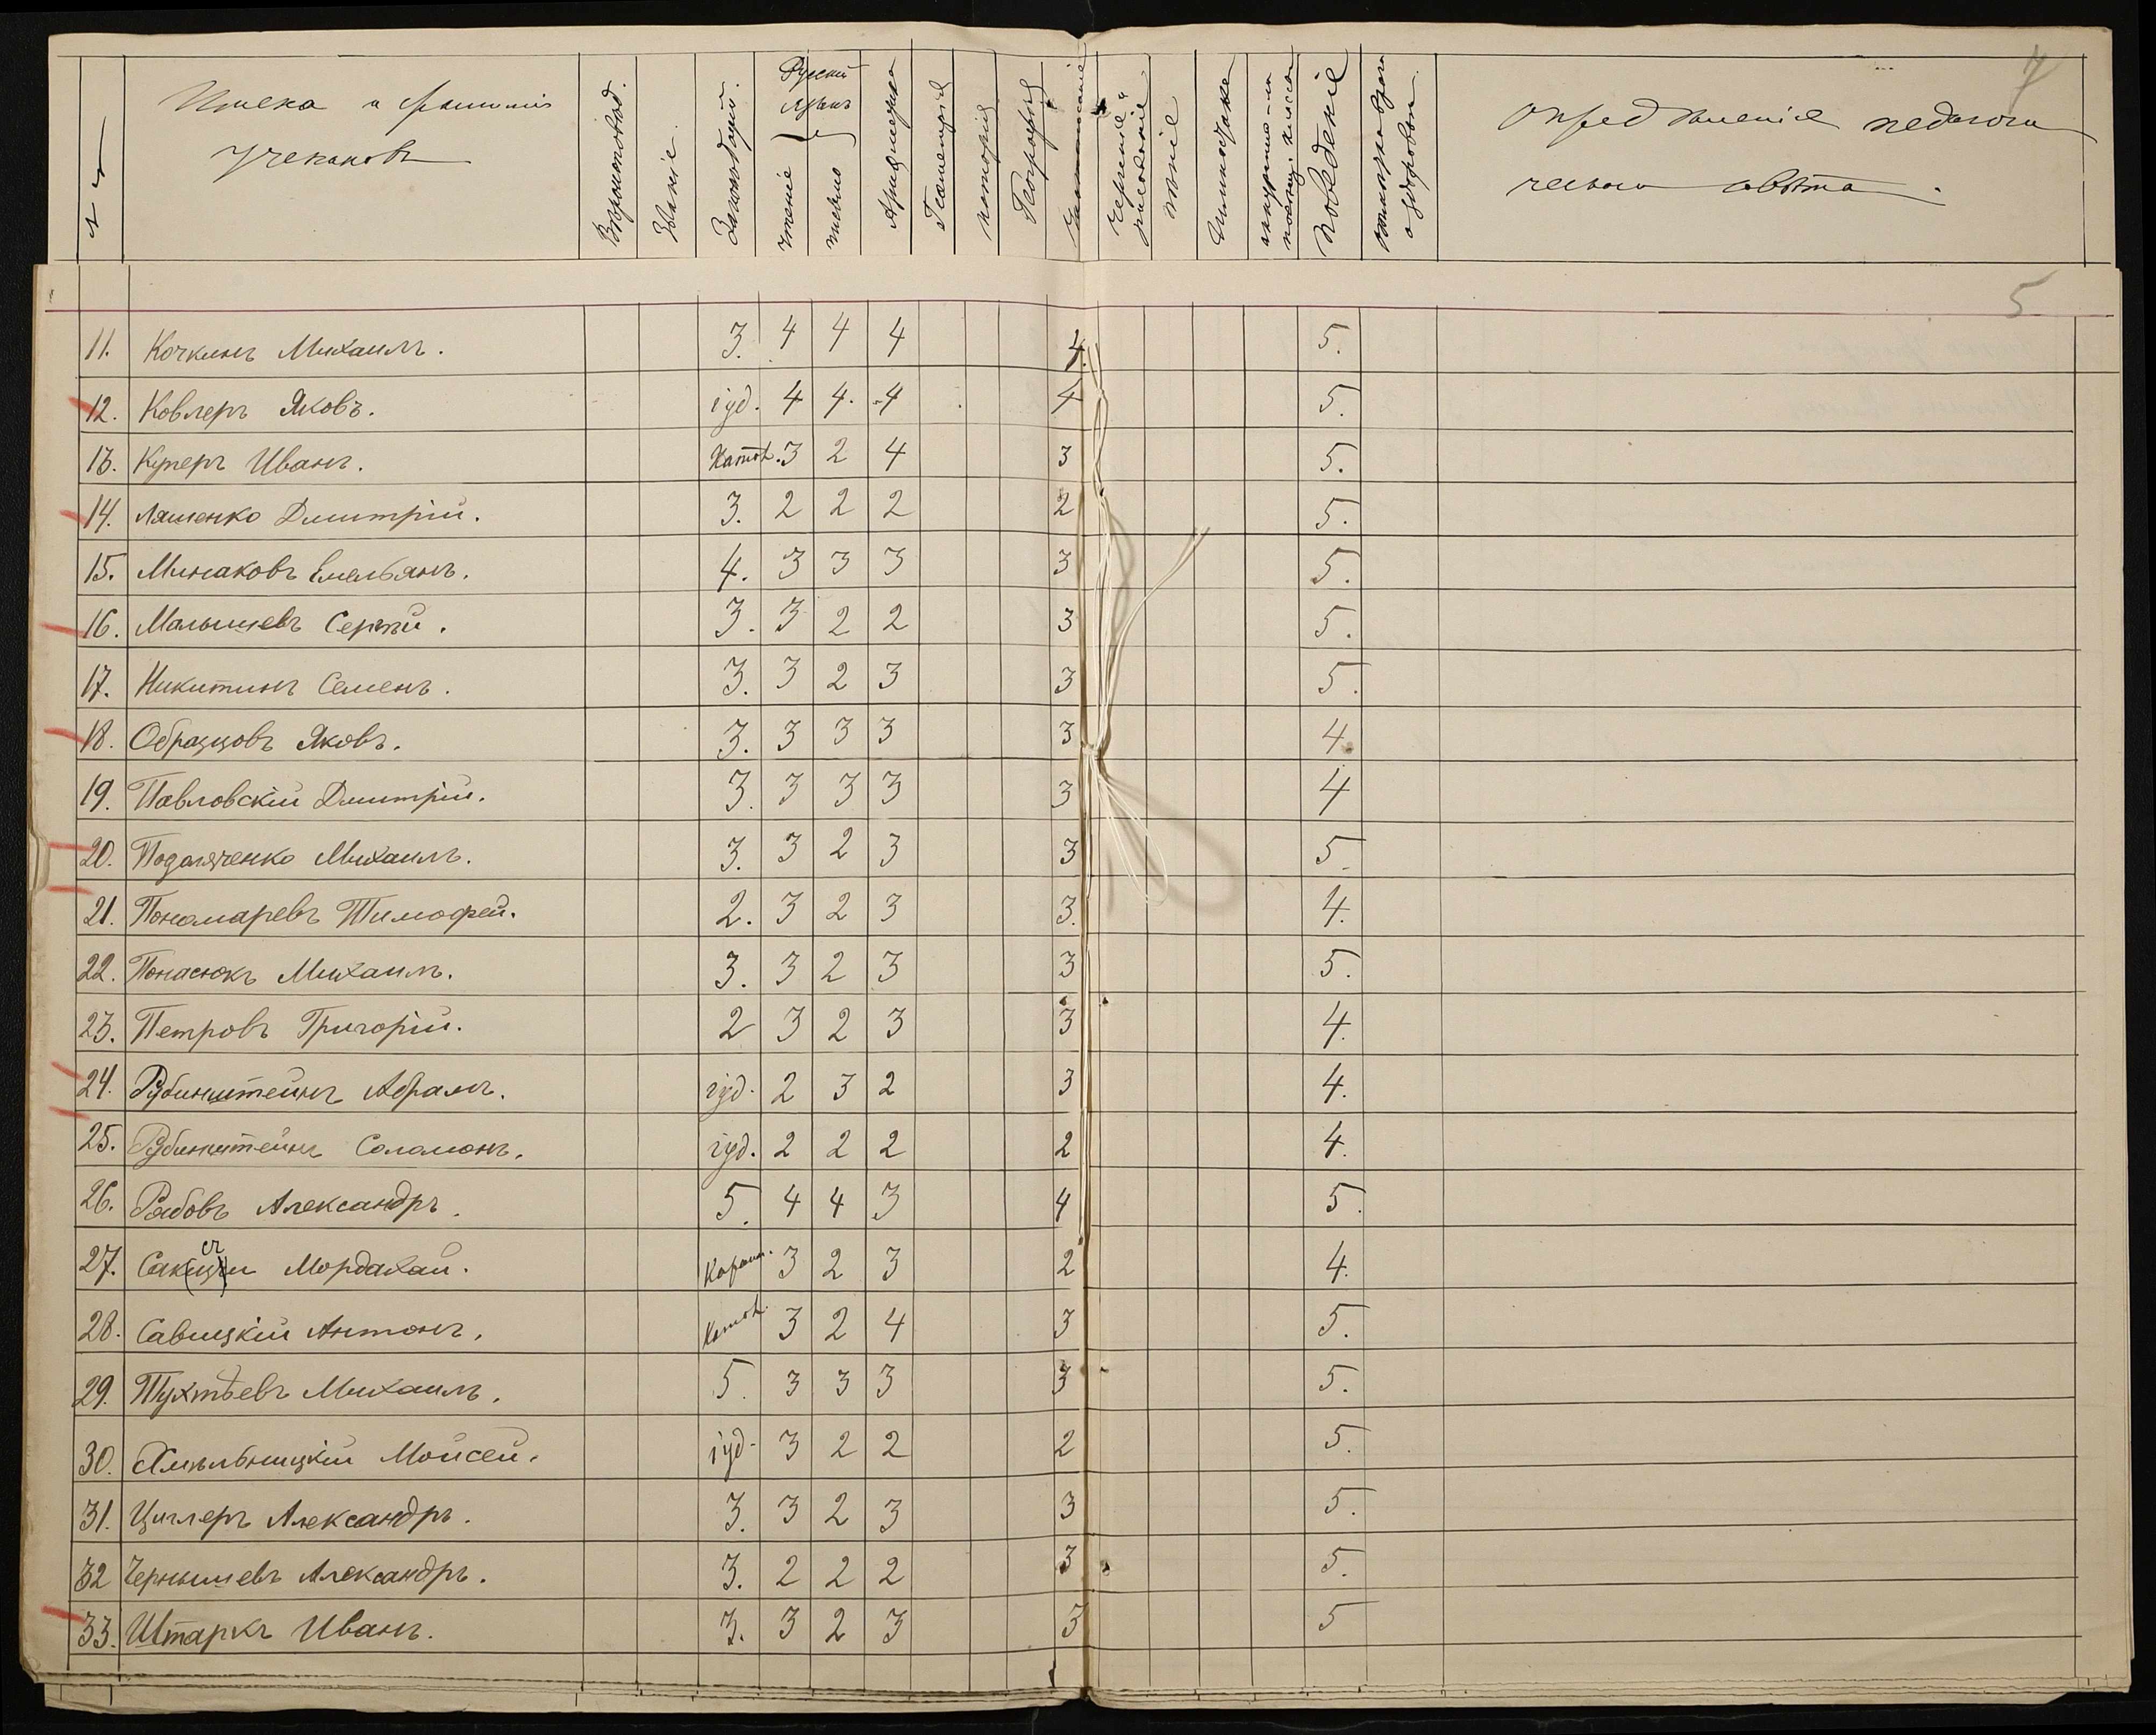 7
Имена и фамилии учениковъ
Вѣроисповѣд.
Званіе.
Законъ Божій.
Русскій языкъ
чтеніе
письмо
Ариѳметика
Геометрія
исторія
Географія
Чистописаніе
Черченіе и рисованіе
пѣніе
Гимнастика
поведеніе
Опредѣленіе педагоги
ческаго совѣта.
5
11. Кочкинъ Михаилъ. 3. 4 4 4 4. 5.
12. Ковлеръ Яковъ. іуд. 4 4. 4 4 5.
13. Куперъ Иванъ. Катол. 3 2 4 3 5.
14. Ляшенко Дмитрій. 3. 2 2 2 2 5.
15. Минаковъ Емельянъ. 4. 3 3 3 3 5.
16. Малышевъ Сергѣй. 3. 3 2 2 3 5.
17. Никитинъ Семенъ. 3. 3 2 3 3 5.
18. Образцовъ Яковъ. 3. 3 3 3 3 4.
19. Павловскій Дмитрій. 3. 3 3 3 3 4
20. Подоляченко Михаилъ. 3. 3 2 3 3 5.
21. Пономаревъ Тимофей. 2. 3 2 3 3. 4.
22. Понасюкъ Михаилъ. 3. 3 2 3 3 5.
23. Петровъ Григорій. 2 3 2 3 3 4.
24. Рубинштейнъ Абрамъ. іуд. 2 3 2 3 4.
25. Рубинштейнъ Соломонъ. іуд. 2 2 2 2 4.
26. Рябовъ Александръ. 5. 4 4 3 4 5.
27. Мордахай. Караим. 3 2 3 2 4.
28. Савицкій Антонъ. Катол. 3 2 4 3 5.
29. Тухтѣевъ Михаилъ. 5. 3 3 3 3 5.
30. Хмѣльницкій Мойсей. іуд. 3 2 2 2 5.
31. Циглеръ Александръ. 3. 3 2 3 3 5.
32 Чернышевъ Александръ. 3. 2 2 2 3 5.
33. Штаркъ Иванъ. 3. 3 2 3 3 5